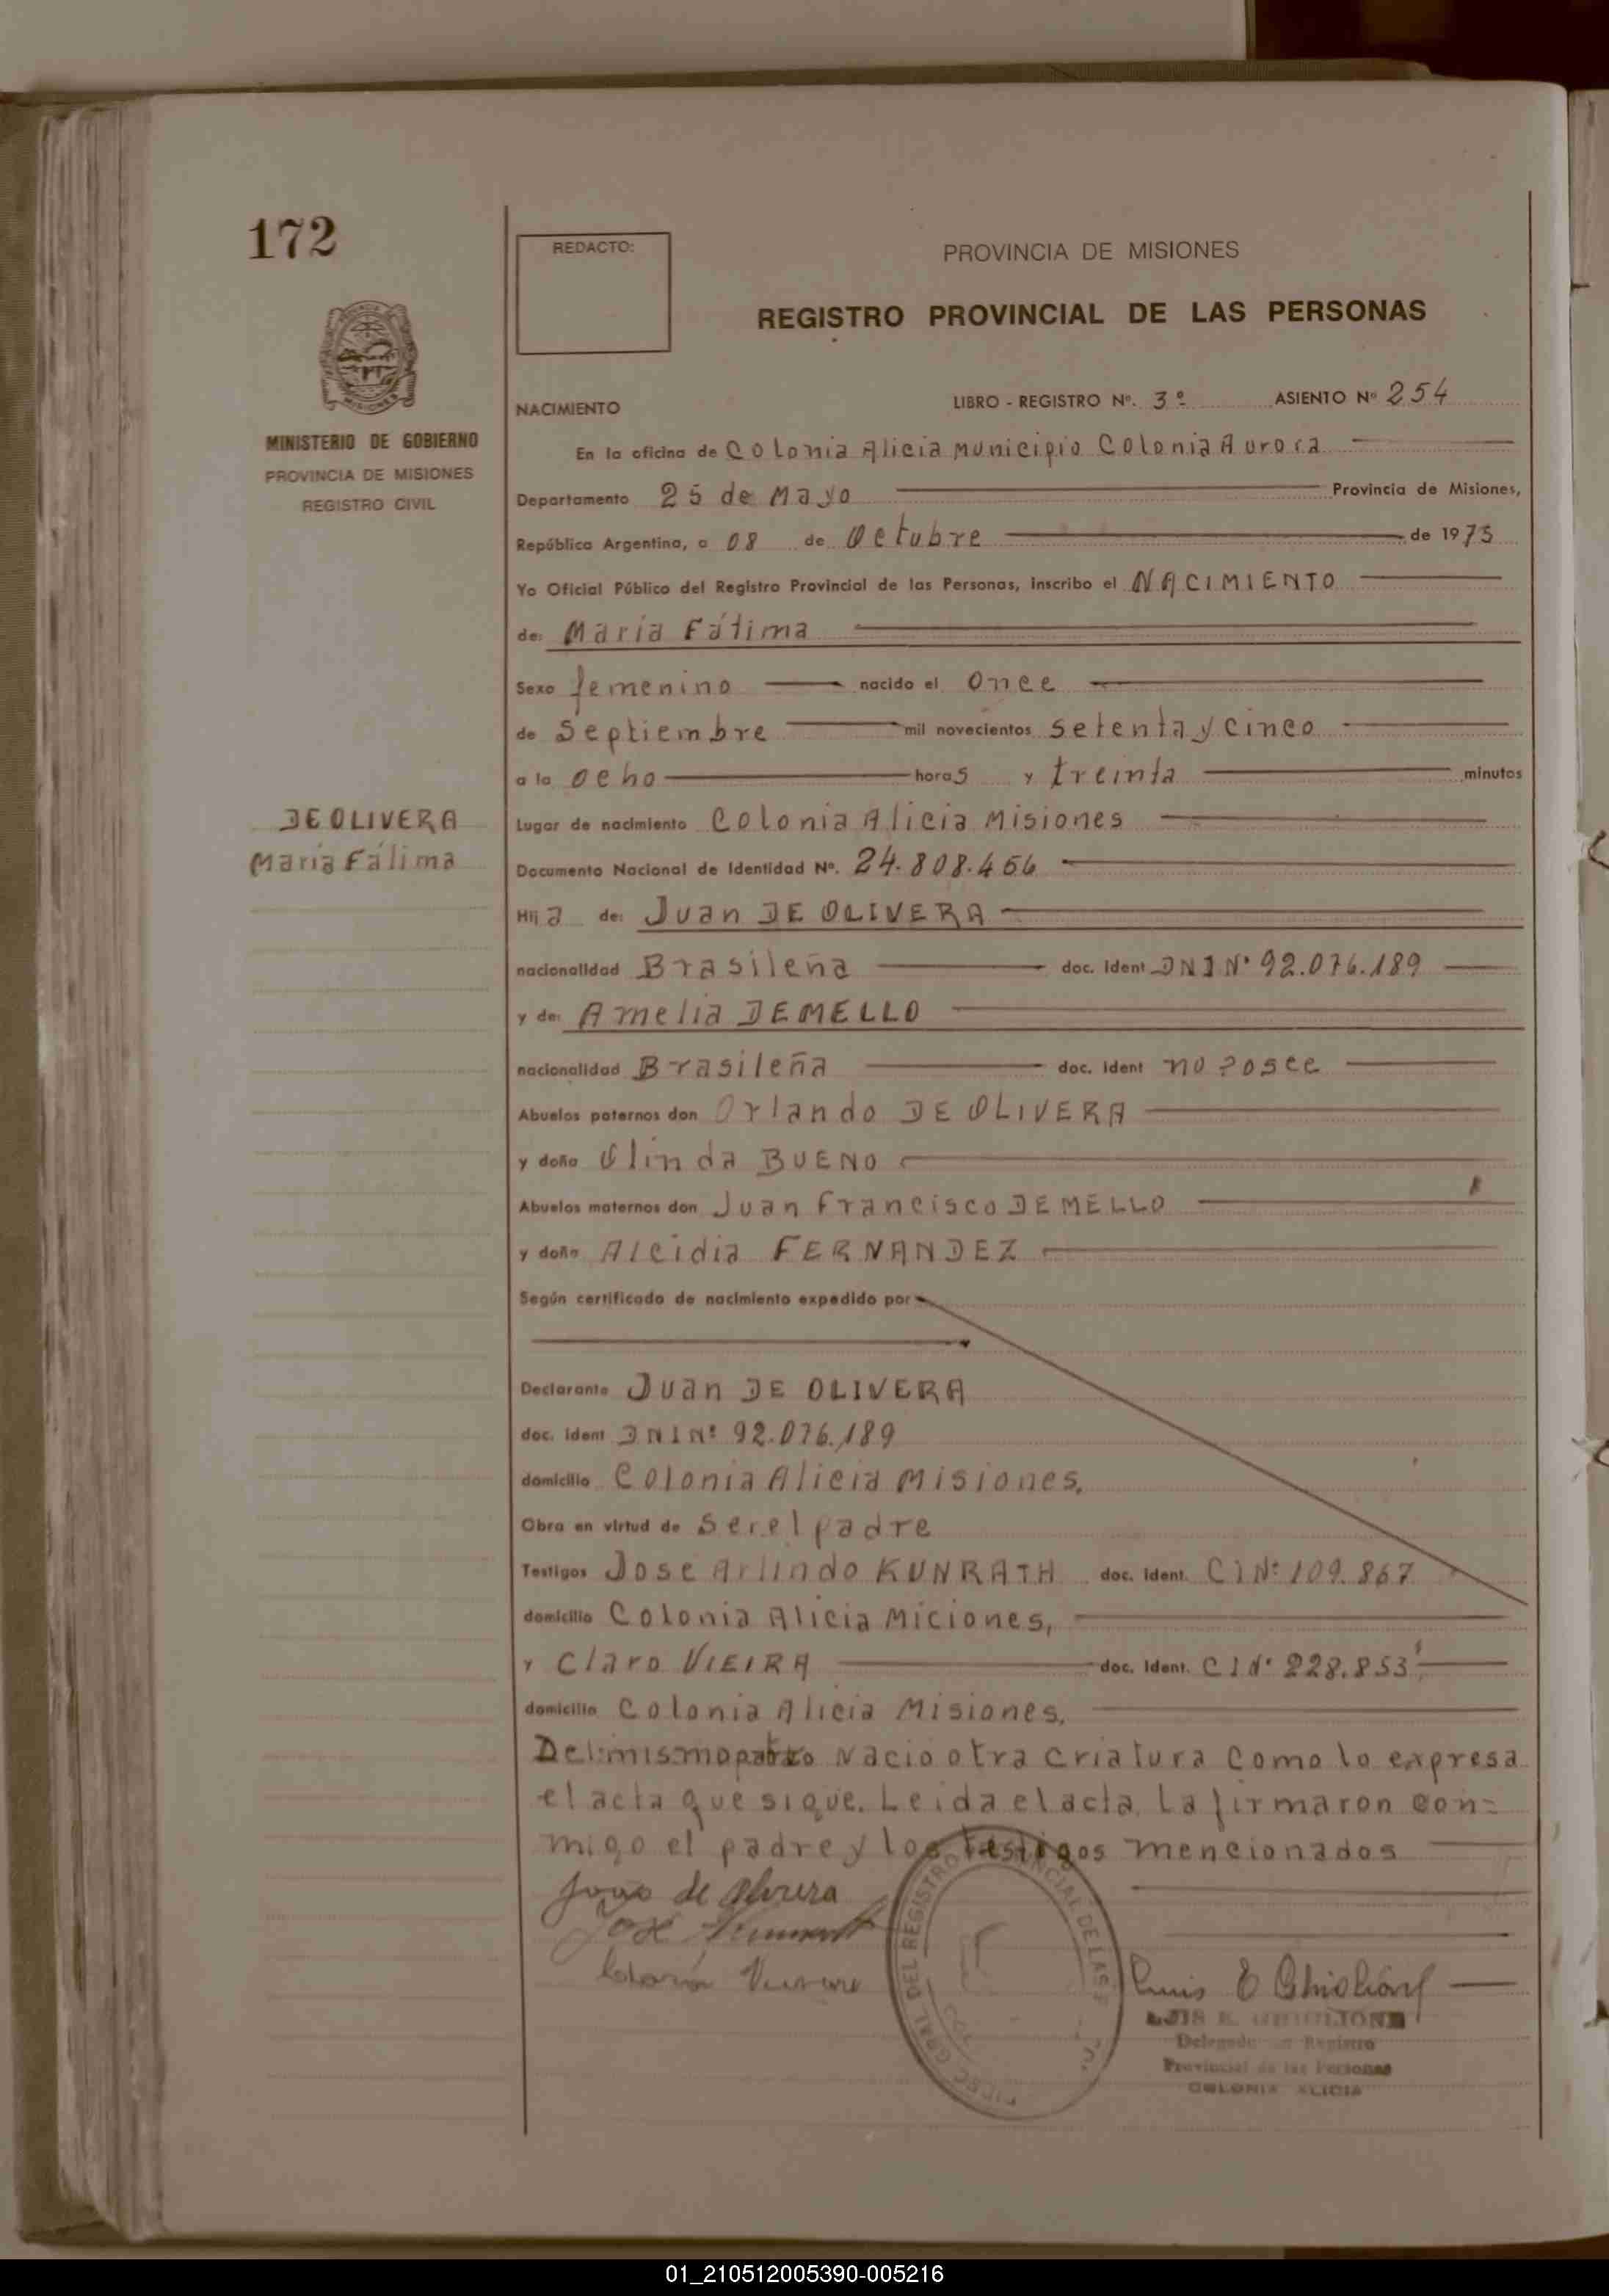 172
REDACTO:
PROVINCIA DE MISIONES
REGISTRO PROVINCIAL DE LAS PERSONAS
MINISTERIO DE GOBIERNO
PROVINCIA DE MISIONES
REGISTRO CIVIL
NACIMIENTO LIBRO - REGISTRO Nº. 3º ASIENTO Nº 254
En la oficina de Colonia Alicia Municipio Colonia Aurora
Departamento 25 de Mayo Provincia de Misiones,
República Argentina, a 08 de Octubre de 1975
Yo Oficial Público del Registro Provincial de las Personas, inscribo el NACIMIENTO
de: María Fátima
Sexo femenino nacido el Once
de Septiembre mil novecientos setenta y cinco
a la ocho horas y treinta minutos
DE OLIVERA
María Fátima
Lugar de nacimiento Colonia Alicia Misiones
Documento Nacional de Identidad Nº. 24.808.456
Hija de: Juan DE OLIVERA
nacionalidad Brasileña doc. Ident DNI Nº 92.076.189
y de: Amelia DEMELLO
nacionalidad Brasileña doc. Ident no posee
Abuelos paternos don Orlando DE OLIVERA
y doña Olinda BUENO
Abuelos maternos don Juan Francisco DEMELLO
y doña Alcidia FERNANDEZ
Según certificado de nacimiento expedido por
Declarante Juan DE OLIVERA
doc. Ident DNI Nº 92.076.189
domicilio Colonia Alicia Misiones.
Obra en virtud de Ser el padre
Testigos José Arlindo KUNRATH doc. Ident. CI Nº 109.867
domicilio Colonia Alicia Miciones,
y Claro VIEIRA doc. Ident. CI Nº 228.853
domicilio Colonia Alicia Misiones.
Del mismo parto Nacio otra criatura como lo expresa
el acta que sigue. Leida el acta La firmaron con=
migo el padre y los testigos mencionados
de Olivera
José
Luis E Ghiglione
LUIS E. GHIGLIONE
Delegado Registro
Provincial de las Personas
COLONIA ALICIA
01_210512005390-005216